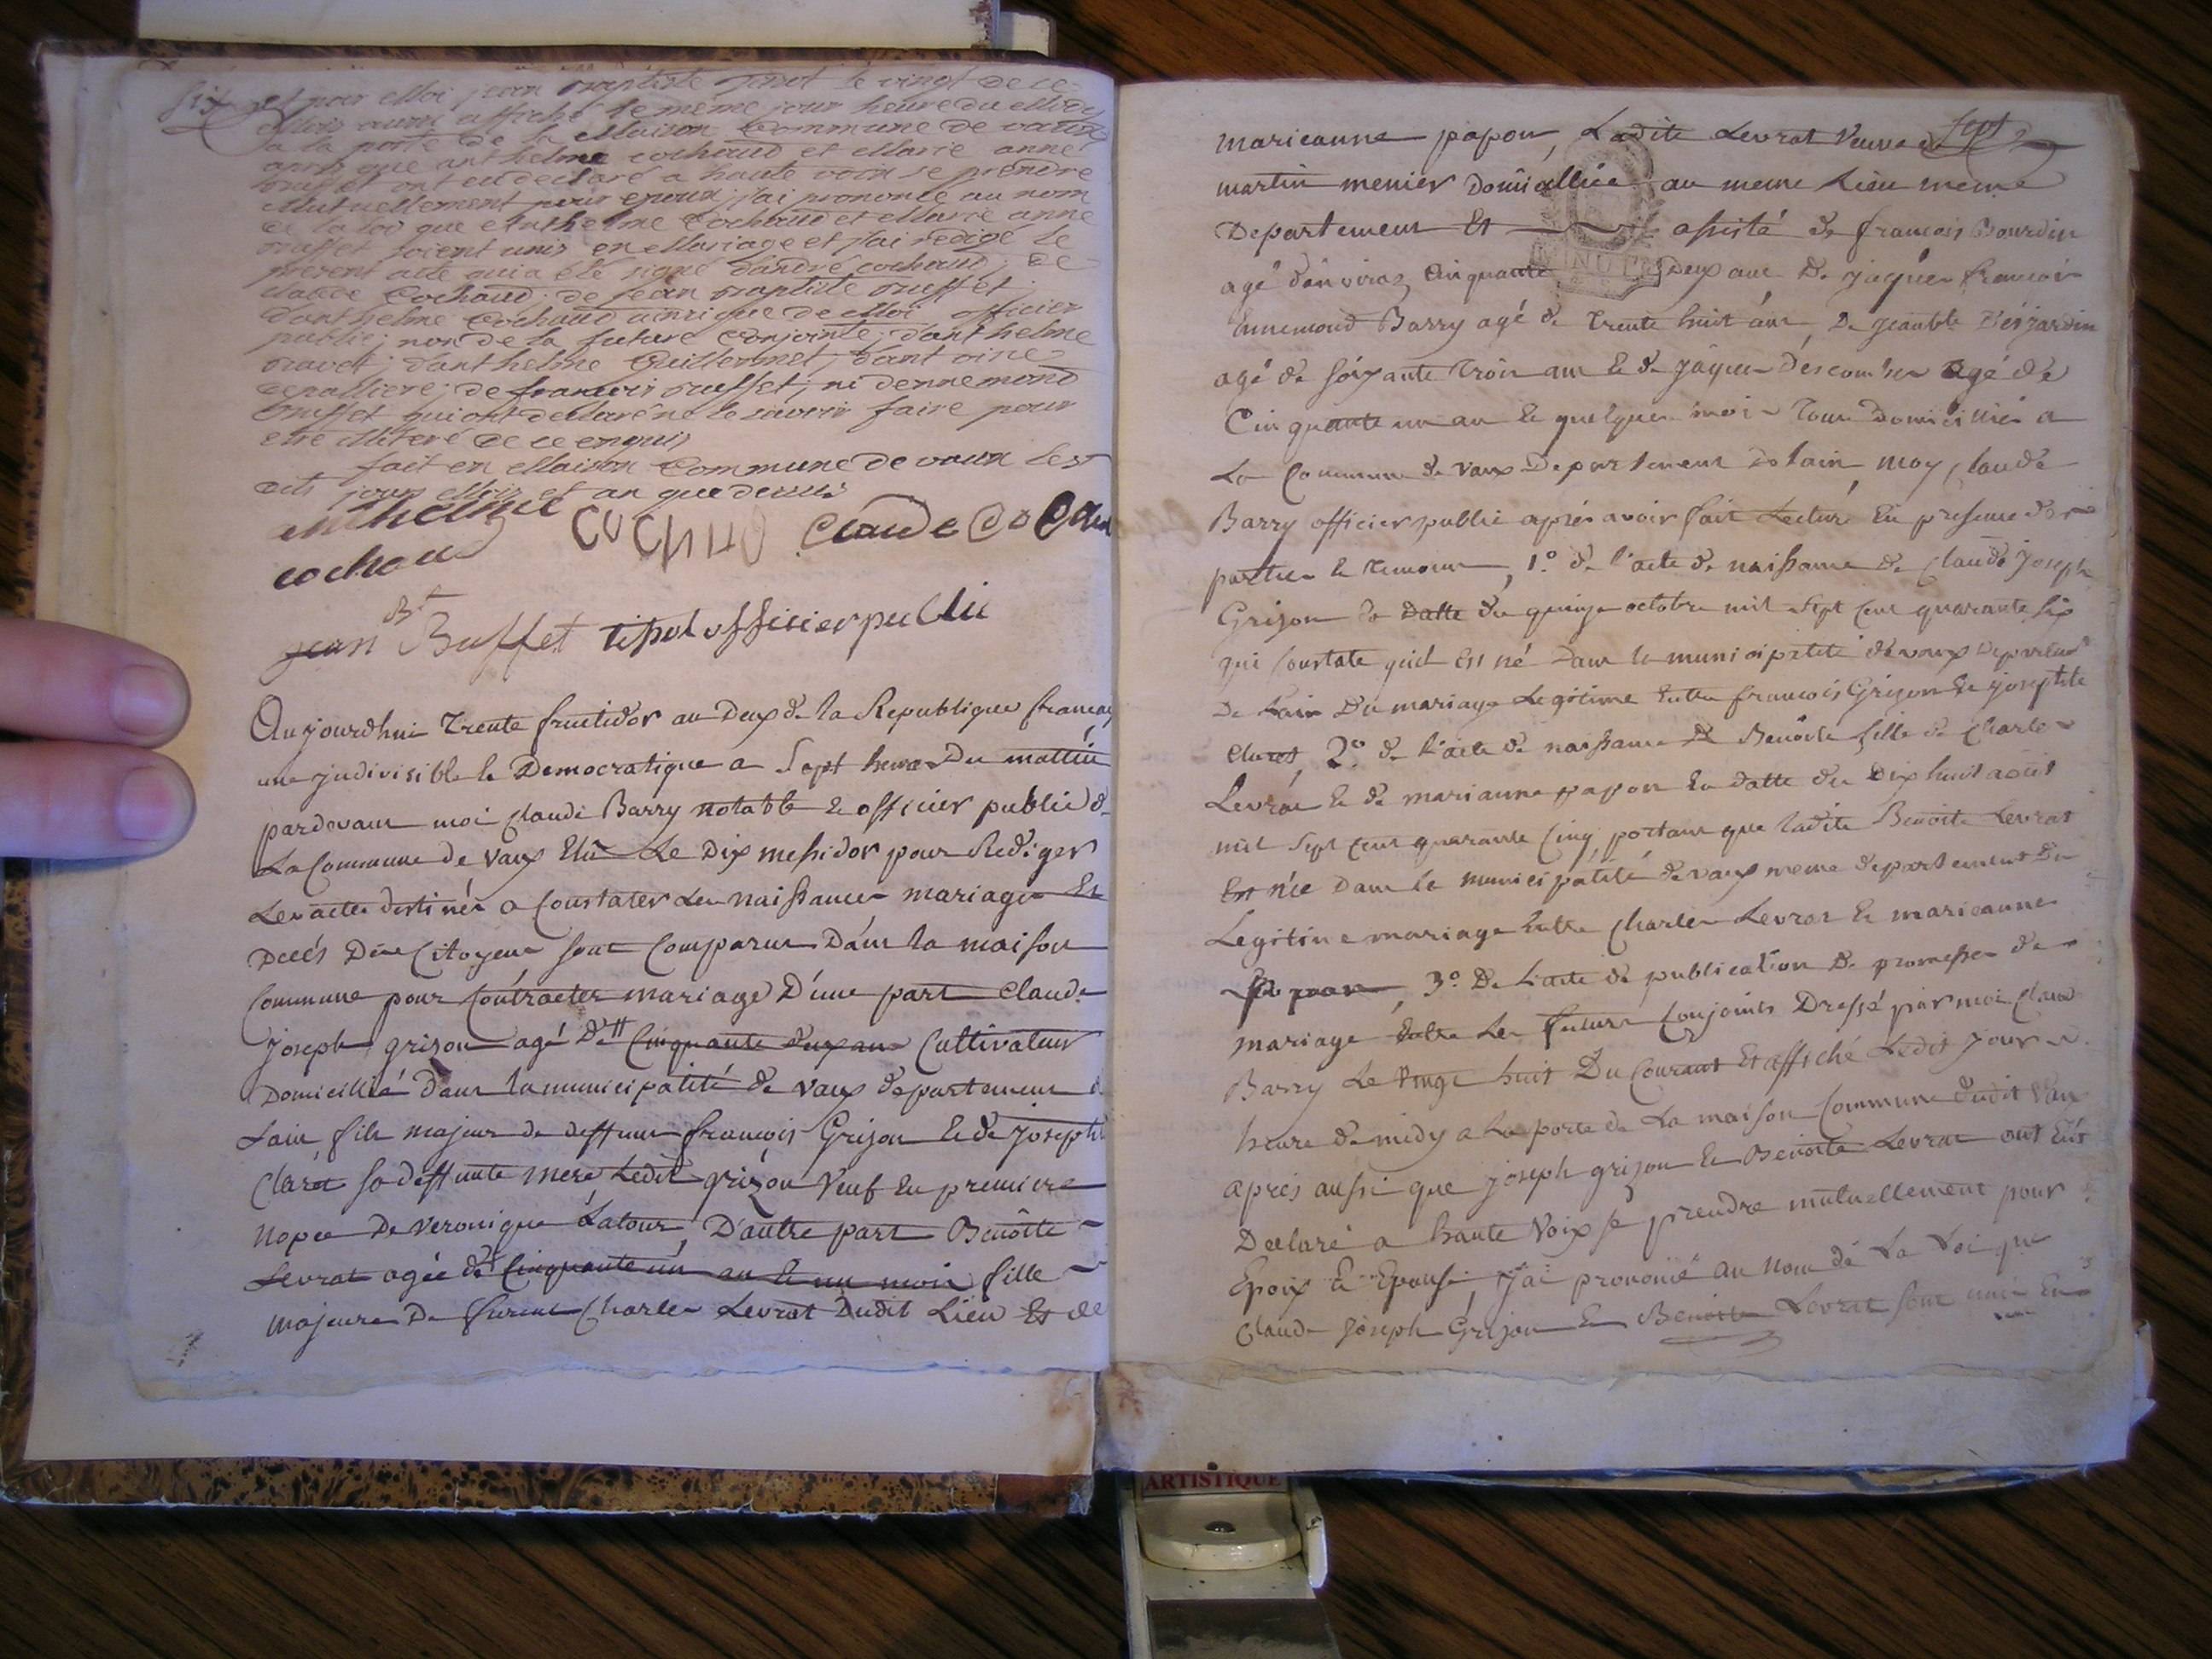 six
et par Moi jean baptiste tipot le vingt de ce
Mois aussi affiché le même jour heure du Midy
a la porte de la Maison Commune de vaux
apres que anthelme cochaud et Marie anne
buffet ont eu declaré a haute voix se prendre
Mutuellement pour epoux j'ai prononcé au nom
de la loi que Anthelme Cochaud et Marie anne
buffet soient unis en Mariage et j'ai redigé le
présent acte qui a été signé d'andré cochaud; de
claude Cochaud; de jean baptiste buffet;
d'anthelme Cochaud ainsi que de Moi officier
public; non de la future Conjointe; d'anthelme
; d'anthelme Guillermet; d'antoine
; de francois buffet; ni dennemond
buffet qui ont declaré ne le savoir faire pour
être de ce enquis
fait en Maison Commune de vaux les
dits jours Mois et an que dessus
Anthelme
cochaud COCHAUD Claude Cochau
jean Bt Buffet tipot officier public
Aujourdhui trente fructidor an Deux de la Republique francay
une jndivisible & Democratique a Sept heures Du mattin
pardevant moi claude Barry notable & officier public de
La Commune de Vaux Elû Le Dix messidor pour Rediger
Les actes destinés a Constater les naissances mariages Et
Decés Des Citoyens sont Comparus Dans la maison
Commune pour Contracter mariage D'une part Claude
joseph grizon agé De Cinquante deux ans Cultivateur
Domicillié dans la municipalité de Vaux departement d
Lain, fils majeur de deffunt francois Grizon & de joseph
Claret sa deffunte mere Ledit grizon Veuf En premiere
nopce De veronique Latour, D'autre part Benoîte
Levrat agée de Cinquante un an & un mois fille
majeure De furent Charles Levrat Dudit Lieu Et de
sept
marieanne papon, Ladite Levrat Veuve de
martin menier Domicilliée au meme Lieu meme
Departement Et assisté de francois Bourdin
agé d'environ Cinquante Deux ans De jaques francois
Ennemond Barry agé de Trente huit ans, De jeanbte Desjardin
agé de soixante trois ans & de jâques Descombes agé de
Cinquante un an & quelques mois Tous Domicilliés a
La Commune de Vaux Departement de Lain, moy claude
Barry officier public aprés avoir fait Lecture En presence des
parties & temoins, 1.° de l'acte de naissance de Claude Joseph
Grizon la Datte du quinze octobre mil Sept Cent quarante Six
qui Constate quil Est né Dans la municipalité de vaux Departemt
De Lain Du mariage Legitime Entre francois Grizon & josephte
Claret, 2.° de l'acte de naissance de Benoîte fille de Charles
Levrat & de marianne papon En datte du Dix huit août
mil Sept Cent quarante Cinq, portant que ladite Benoîte Levrat
Est née Dans la municipalité de vaux meme departement Du
Legitime mariage Entre Charles Levrat & marieanne
papon, 3.° De Lacte de publication De promesses de
mariage Entre Les futurs Conjoints Dressé par moi Claud
Barry Le Vingt huit Du Courant Et affiché Ledit jour
heure de midy a La porte de La maison Commune dudit Vaux
aprés aussi que joseph grizon & Benoîte Levrat ont Eût
Declaré a haute Voix se prendre mutuellement pour
Epoix & Epouse, j'ai prononcé au nom de La Loi que
Claude Joseph Grizon & Benoîte Levrat sont unis En
ARTISTIQUE